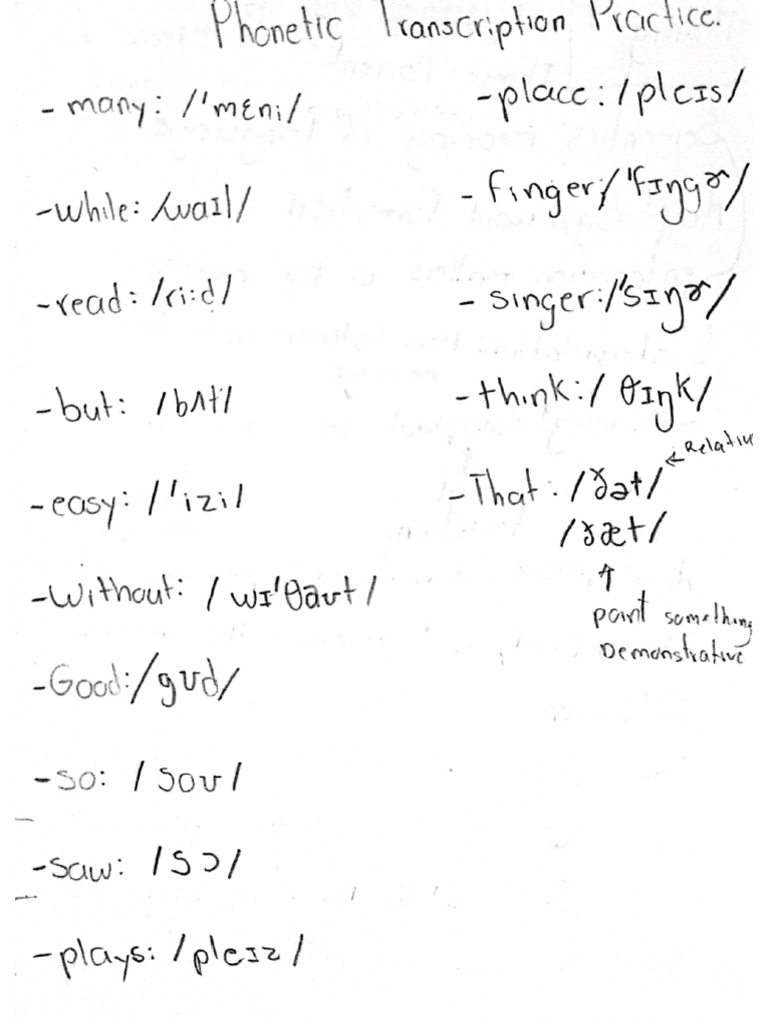 Phonetic Transcription Practice.
- many: /'mɛni/
- while: /waɪl/
- read: /ri:d/
- but: /bʌt/
- easy: /'izi/
- Without: /wɪ'θaʊt/
- Good: /gʊd/
- so: /soʊ/
- saw: /sɔ/
- plays: /pleɪz/
- place: /pleɪs/
- finger: /'fɪŋgɚ/
- singer: /'sɪŋɚ/
- think: /θɪŋk/
- That: /ðət/ ←
/ðæt/
↑
point something
Demonstrative